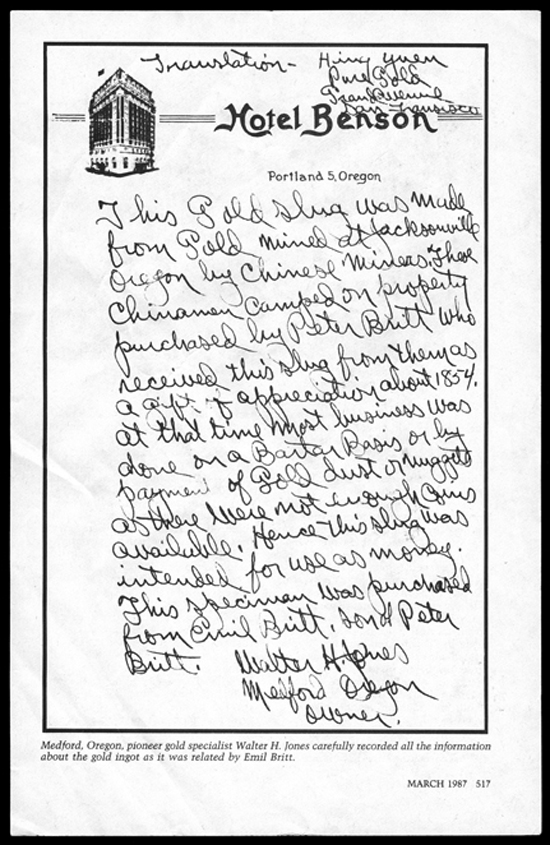 Translation - Hing Yuen
Pure Gold
San Francisco
Hotel Benson
Portland 5, Oregon
This Gold slug was made
from Gold mined at Jacksonville
Oregon by Chinese Miners. These
Chinamen camped on property
purchased by Peter Britt who
received this slug from them as
a gift of appreciation about 1854.
at that time most business was
done on a Barter Basis or by
payment of Gold dust or nuggets
as there were not enough coins
available. Hence this slug was
intended for use as money.
This speciman was purchased
from Emil Britt, son of Peter
Britt. Walter H. Jones
Medford Oregon
owner.
Medford, Oregon, pioneer gold specialist Walter H. Jones carefully recorded all the information
about the gold ingot as it was related by Emil Britt.
MARCH 1987 517